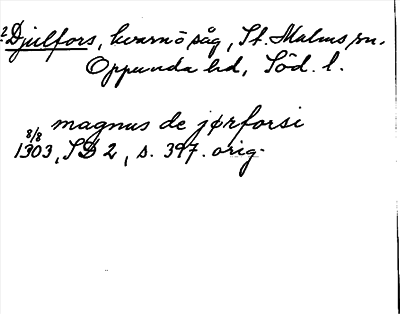 ? Djulfors, kvarn o såg, St. Malms sn.
Oppunda hd, Söd. l.
magnus de jørforsi
8/8
1303, SD 2, s. 397. orig.